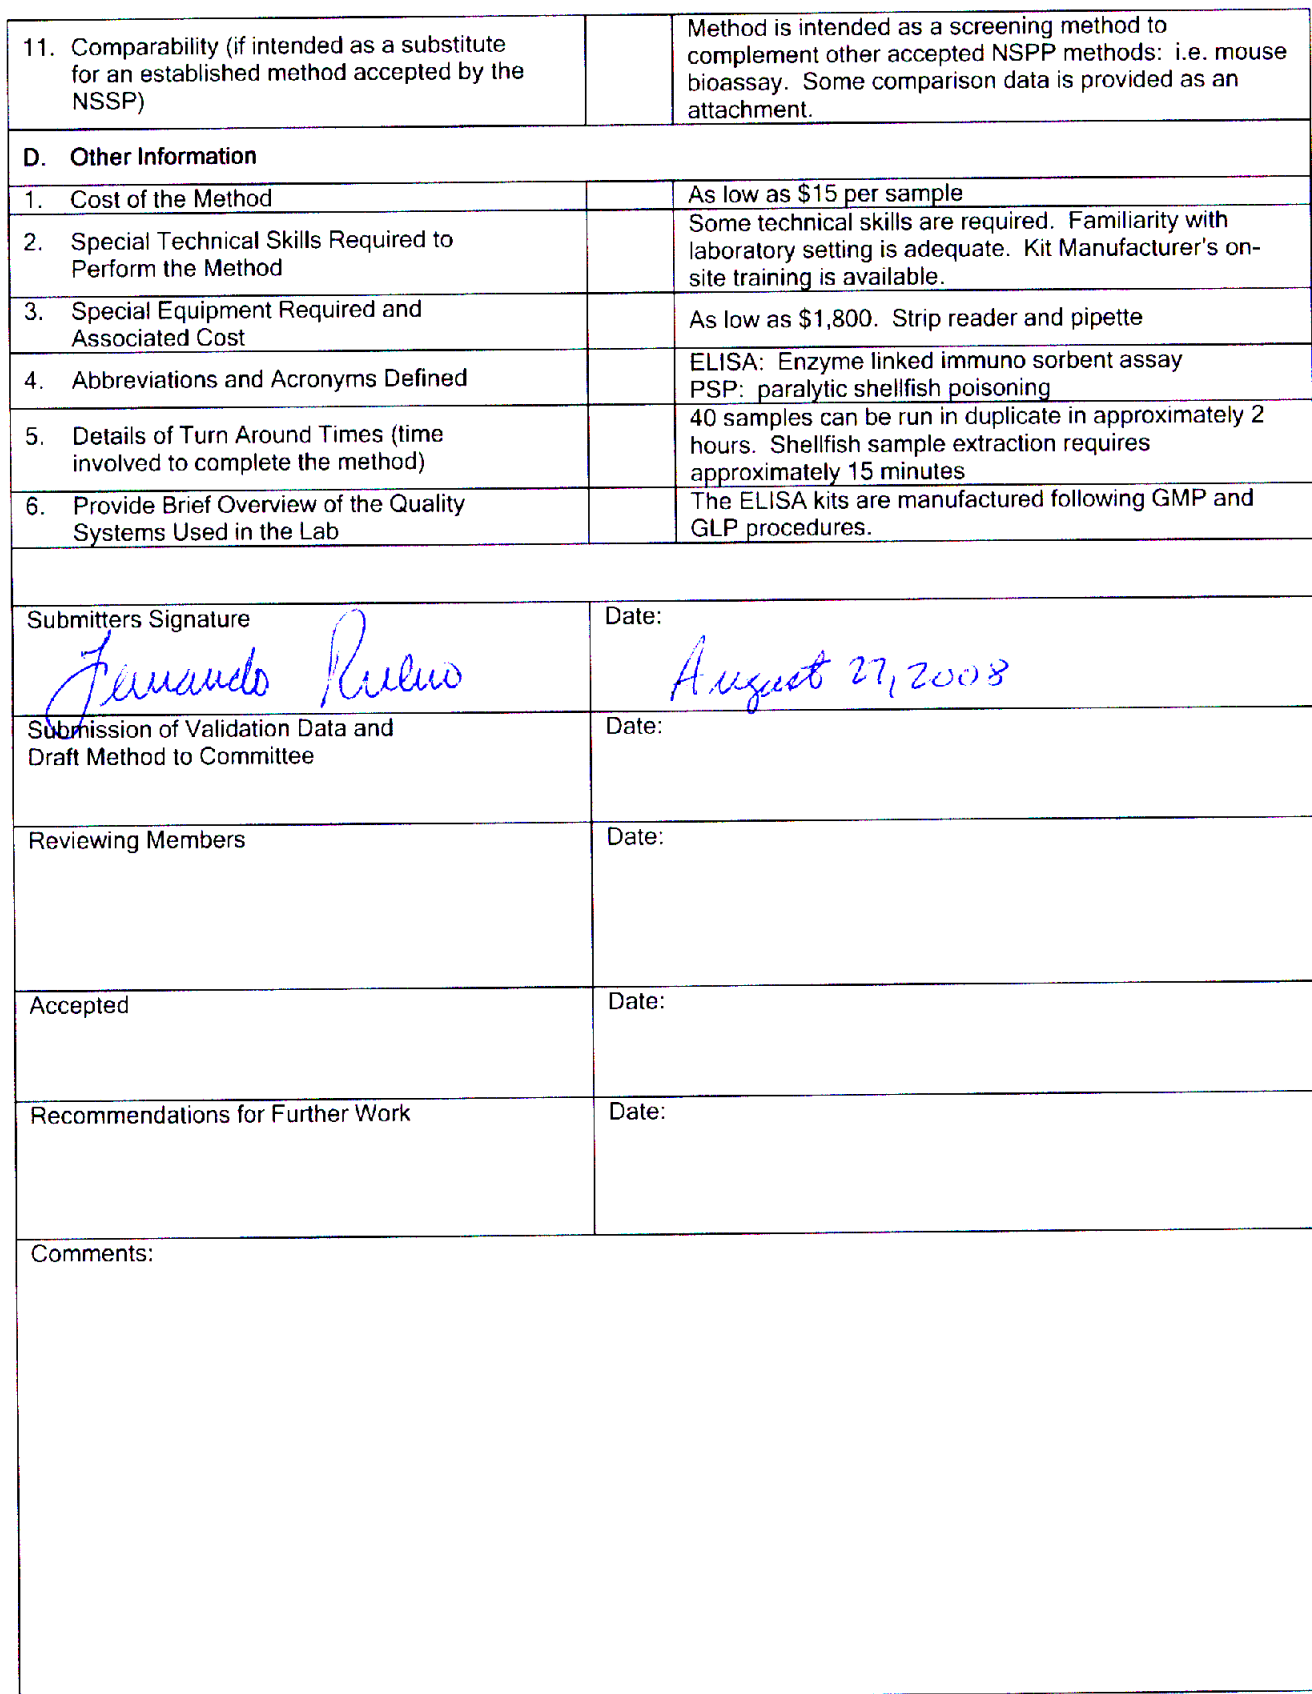 11. Comparability (if intended as a substitute
for an established method accepted by the
NSSP)
Method is intended as a screening method to
complement other accepted NSPP methods: i.e. mouse
bioassay. Some comparison data is provided as an
attachment.
D. Other Information
1. Cost of the Method
As low as $15 per sample
2. Special Technical Skills Required to
Perform the Method
Some technical skills are required. Familiarity with
laboratory setting is adequate. Kit Manufacturer's on-
site training is available.
3. Special Equipment Required and
Associated Cost
As low as $1,800. Strip reader and pipette
4. Abbreviations and Acronyms Defined
ELISA: Enzyme linked immuno sorbent assay
PSP: paralytic shellfish poisoning
5. Details of Turn Around Times (time
involved to complete the method)
40 samples can be run in duplicate in approximately 2
hours. Shellfish sample extraction requires
approximately 15 minutes
6. Provide Brief Overview of the Quality
Systems Used in the Lab
The ELISA kits are manufactured following GMP and
GLP procedures.
Submitters Signature
Fernando Rubio
Date:
August 27, 2008
Submission of Validation Data and
Draft Method to Committee
Date:
Reviewing Members
Date:
Accepted
Date:
Recommendations for Further Work
Date:
Comments: